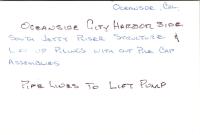 Oceanside, Cal.
Oceanside City Harbor Side
South Jetty Riser Structure &
Lay up Pilings with out Pile Cap
Assemblies
Pipe Lines To Lift Pump